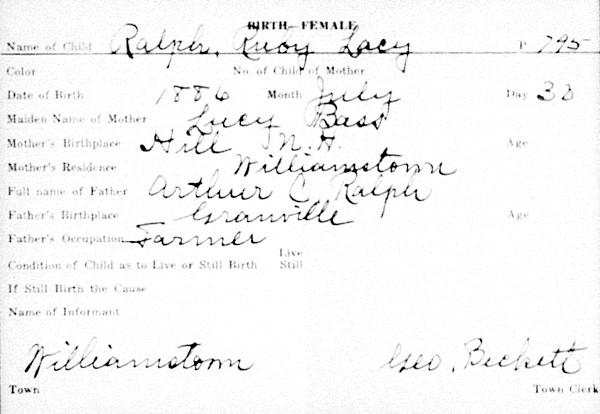 BIRTH—FEMALE
Name of Child Ralph, Ruby Lacy P 795
Color No. of Child of Mother
Date of Birth 1886 Month July Day 30
Maiden Name of Mother Lucy Bass
Mother's Birthplace Hill N.H. Age
Mother's Residence Williamstown
Full name of Father Arthur C. Ralph
Father's Birthplace Granville Age
Father's Occupation Farmer
Condition of Child as to Live or Still Birth Live Still
If Still Birth the Cause
Name of Informant
Williamstown Geo. Beckett
Town Town Clerk